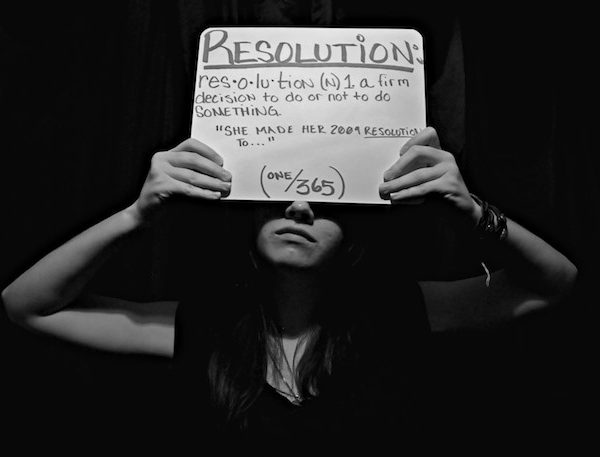 RESOLUTION:
res·o·lu·tion (N) 1. a firm
decision to do or not to do
SOMETHING.
"SHE MADE HER 2009 RESOLUTION
TO..."
(ONE/365)